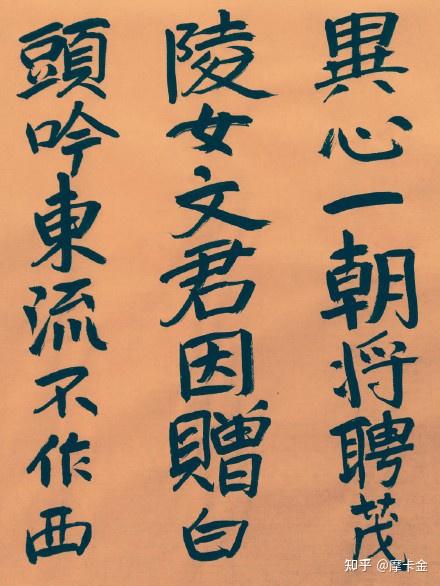 異心一朝将聘茂
陵女文君因贈白
頭吟東流不作西
知乎 @摩卡金